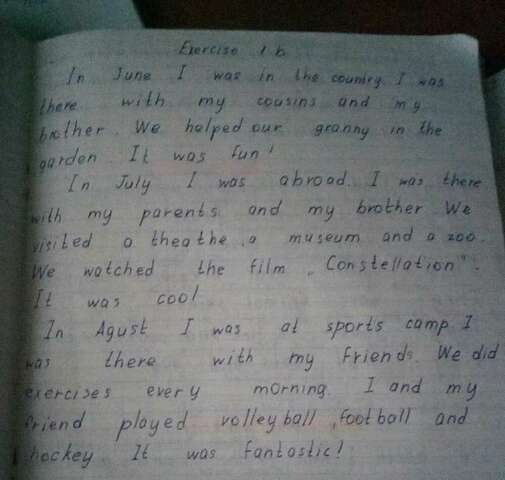 Exercise 1 b
In June I was in the country I was
there with my cousins and my
brother. We helped our granny in the
garden. It was fun!
In July I was abroad. I was there
with my parents and my brother We
visited a theathe, a museum and a zoo.
We watched the film „Constellation".
It was cool
In Agust I was at sports camp I
was there with my friends. We did
exercises every morning. I and my
friend played volleyball, football and
hockey It was fantastic!